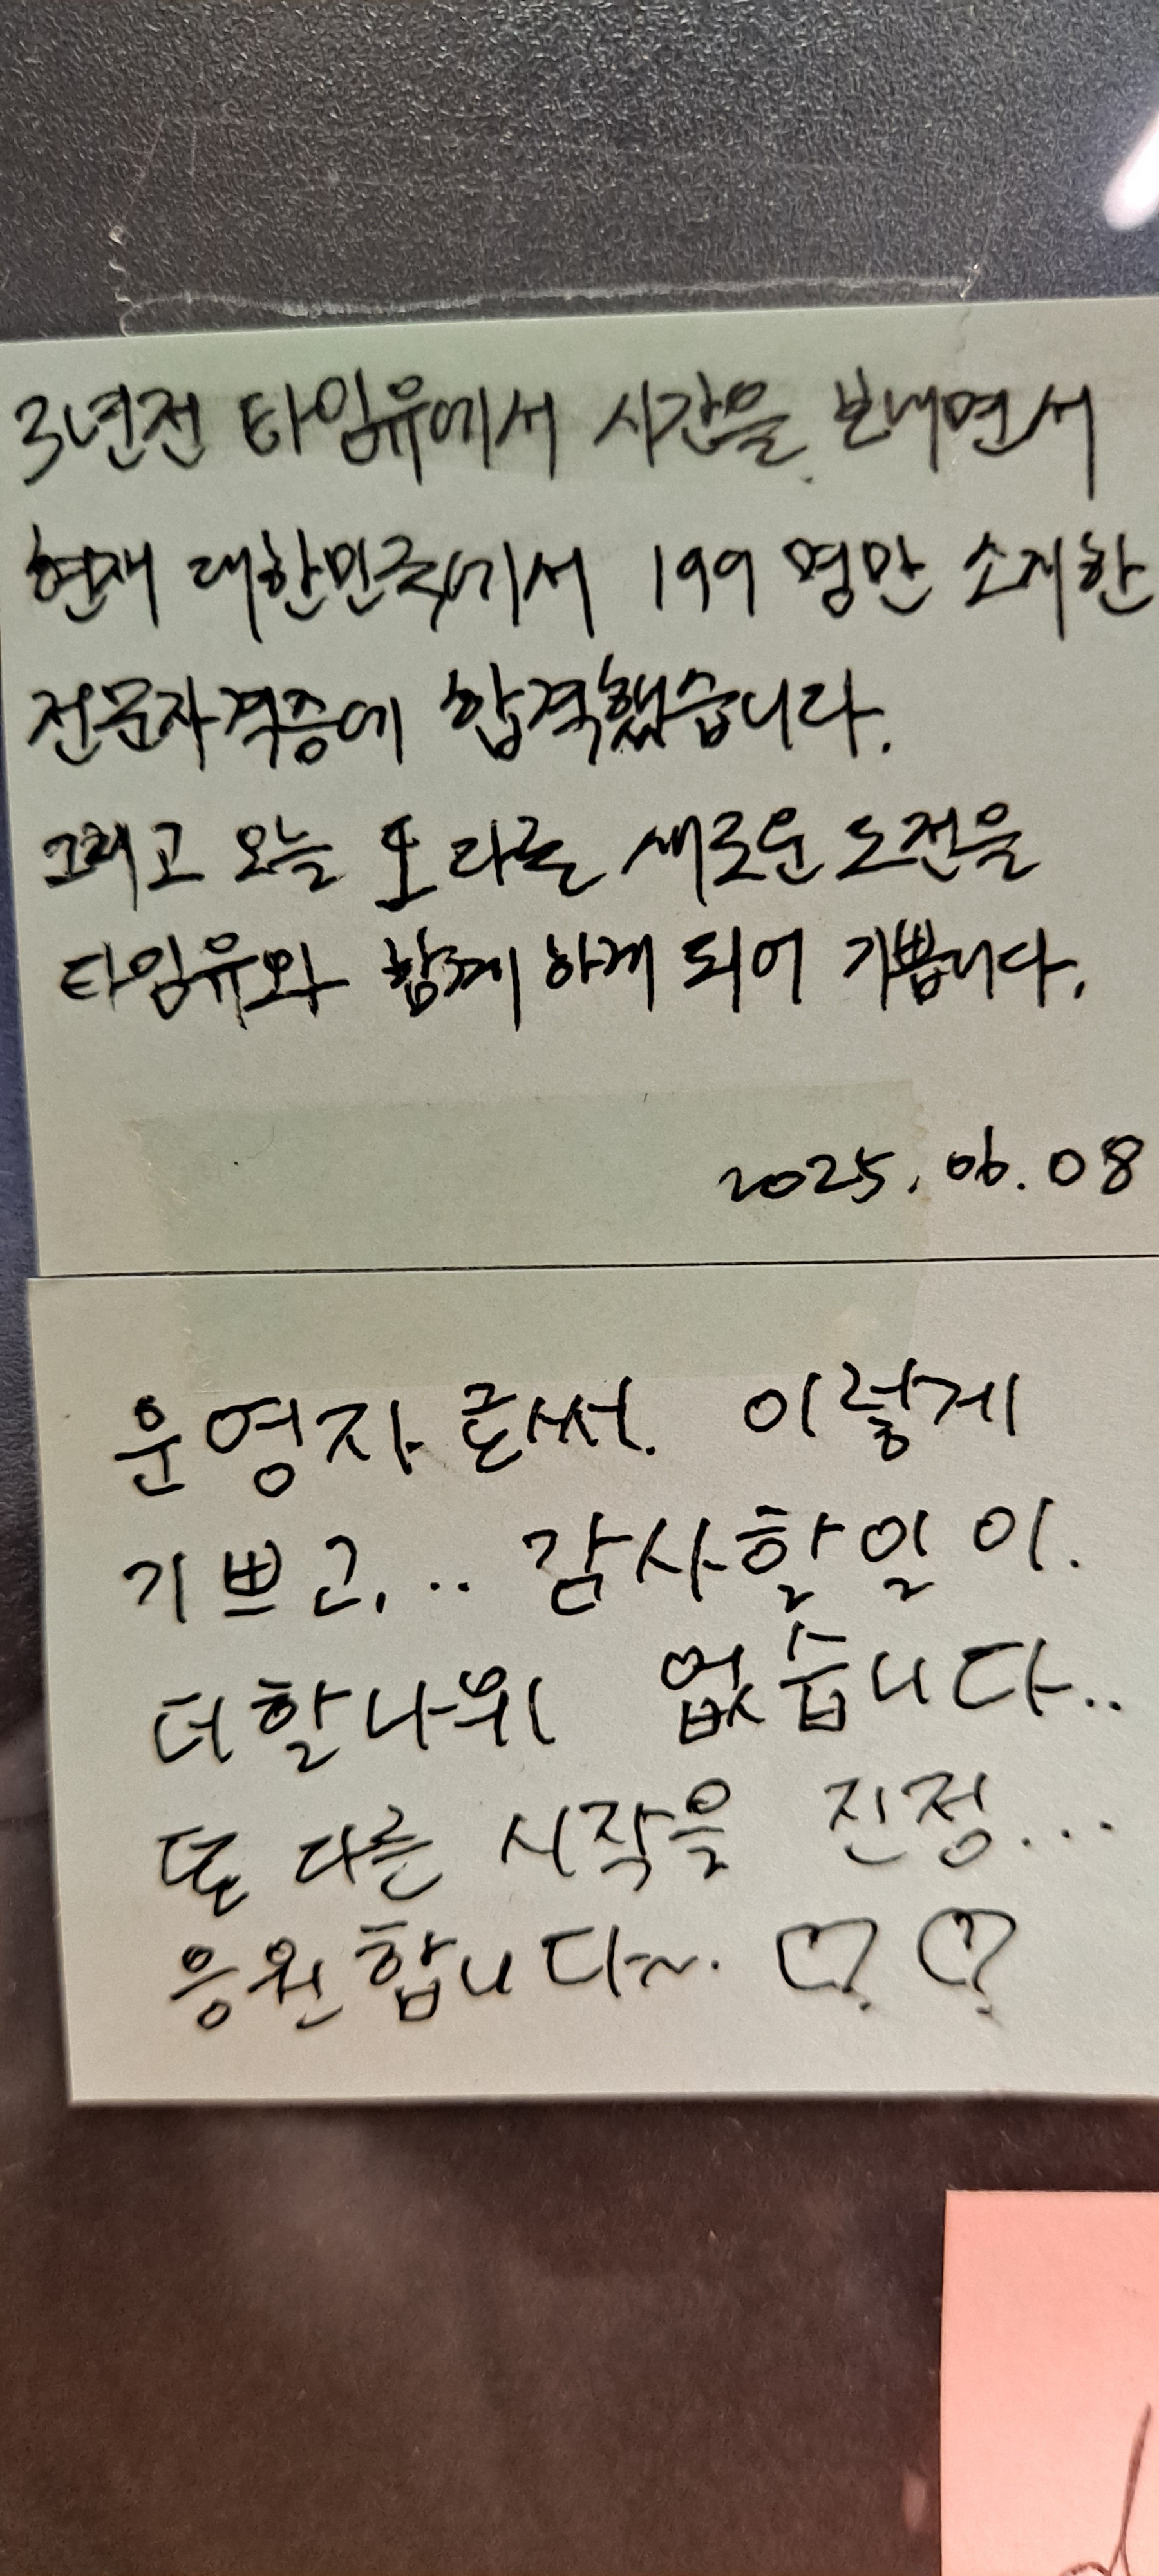 3년전 타임유에서 시간을 보내면서
현재 대한민국에서 199명만 소지한
전문자격증에 합격했습니다.
그리고 오늘 또 다른 새로운 도전을
타임유와 함께 하게 되어 기쁩니다.
2025.06.08
운영자로써. 이렇게
기쁘고... 감사할일이.
더할나위 없습니다..
또 다른 시작을 진정...
응원합니다~. ♡ ♡